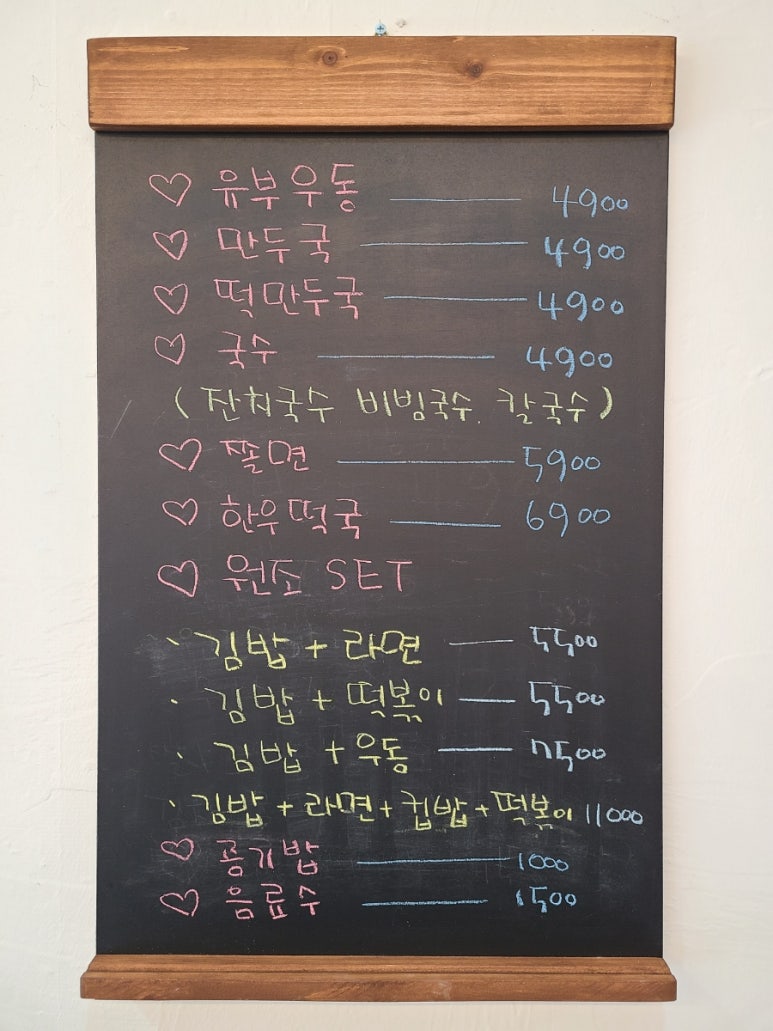 ♡ 유부우동 —— 4900
♡ 만두국 —— 4900
♡ 떡만두국 —— 4900
♡ 국수 —— 4900
( 잔치국수 비빔국수. 칼국수 )
♡ 쫄면 —— 5900
♡ 한우떡국 —— 6900
♡ 원조 SET
· 김밥 + 라면 —— 5500
· 김밥 + 떡볶이 —— 5500
· 김밥 + 우동 —— 7500
· 김밥 + 라면 + 컵밥 + 떡볶이 11000
♡ 공기밥 —— 1000
♡ 음료수 —— 1500